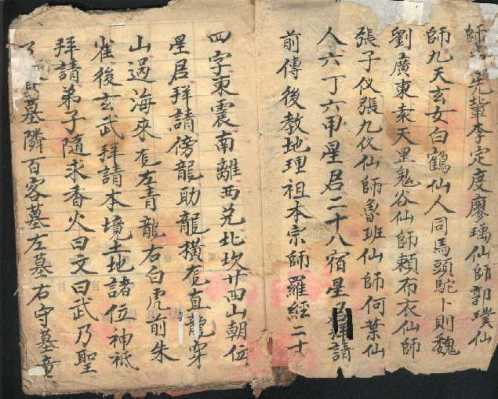 先輩李定度廖瑀仙師郭璞仙
師九天玄女白鶴仙人同馬頭駝卜則魏
劉廣東袁天罡鬼谷仙師賴布衣仙師
張子儀張九仪仙師魯班仙師何葉仙
人六丁六甲星君二十八宿星拜請
前傳後教地理祖本宗師羅經二十
四字東震南離西兌北坎廿四山朝位
星居拜請傍龍助龍橫龍直龍穿
山過海來龍左青龍右白虎前朱
雀後玄武拜請本境土地諸位神祇
拜請弟子隨求香火曰文曰武乃聖
墓隣百客墓左墓右守墓童